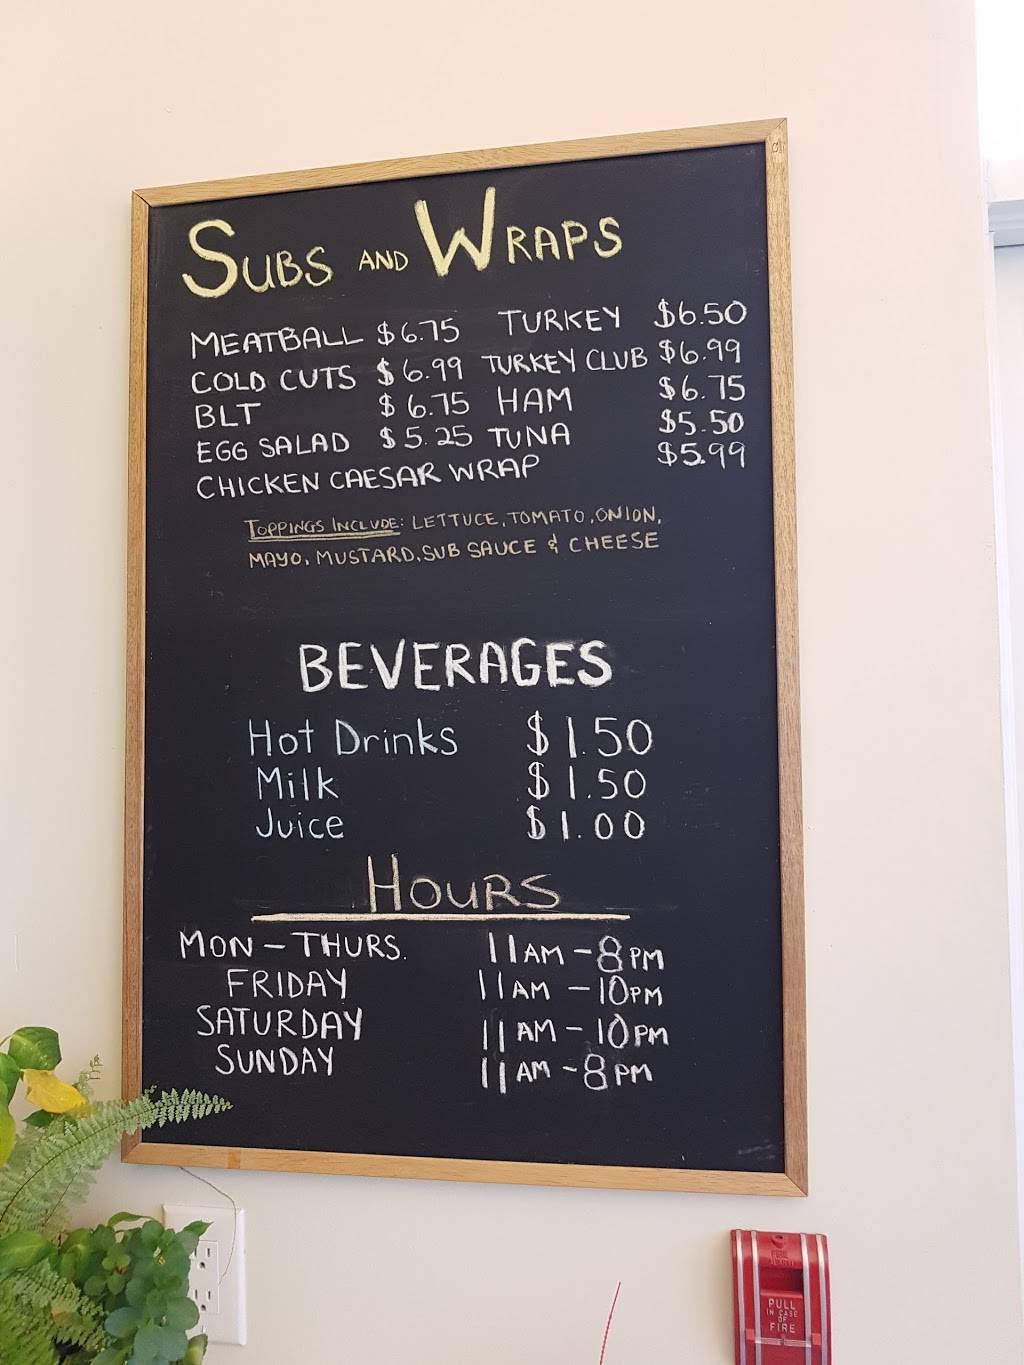 SUBS AND WRAPS
MEATBALL $6.75 TURKEY $6.50
COLD CUTS $6.99 TURKEY CLUB $6.99
BLT $6.75 HAM $6.75
EGG SALAD $5.25 TUNA $5.50
CHICKEN CAESAR WRAP $5.99
TOPPINGS INCLUDE: LETTUCE, TOMATO, ONION,
MAYO, MUSTARD, SUB SAUCE & CHEESE
BEVERAGES
Hot Drinks $1.50
Milk $1.50
Juice $1.00
HOURS
MON - THURS. 11AM - 8PM
FRIDAY 11AM - 10PM
SATURDAY 11AM - 10PM
SUNDAY 11AM - 8PM
PULL
IN CASE
OF
FIRE